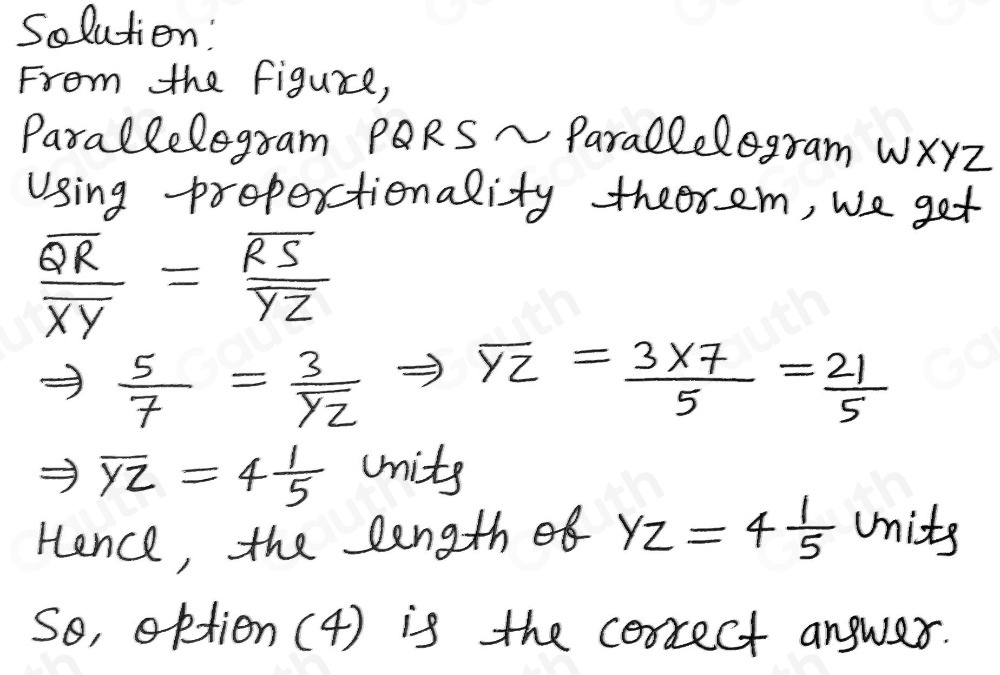 Solution:
From the figure,
Parallelogram PQRS ~ Parallelogram WXYZ
Using proportionality theorem, we get
$\frac{\overline{QR}}{\overline{XY}} = \frac{\overline{RS}}{\overline{YZ}}$
⇒ $\frac{5}{7} = \frac{3}{\overline{YZ}}$ ⇒ $\overline{YZ} = \frac{3 \times 7}{5} = \frac{21}{5}$
⇒ $\overline{YZ} = 4\frac{1}{5}$ units
Hence, the length of YZ = $4\frac{1}{5}$ units
So, option (4) is the correct answer.